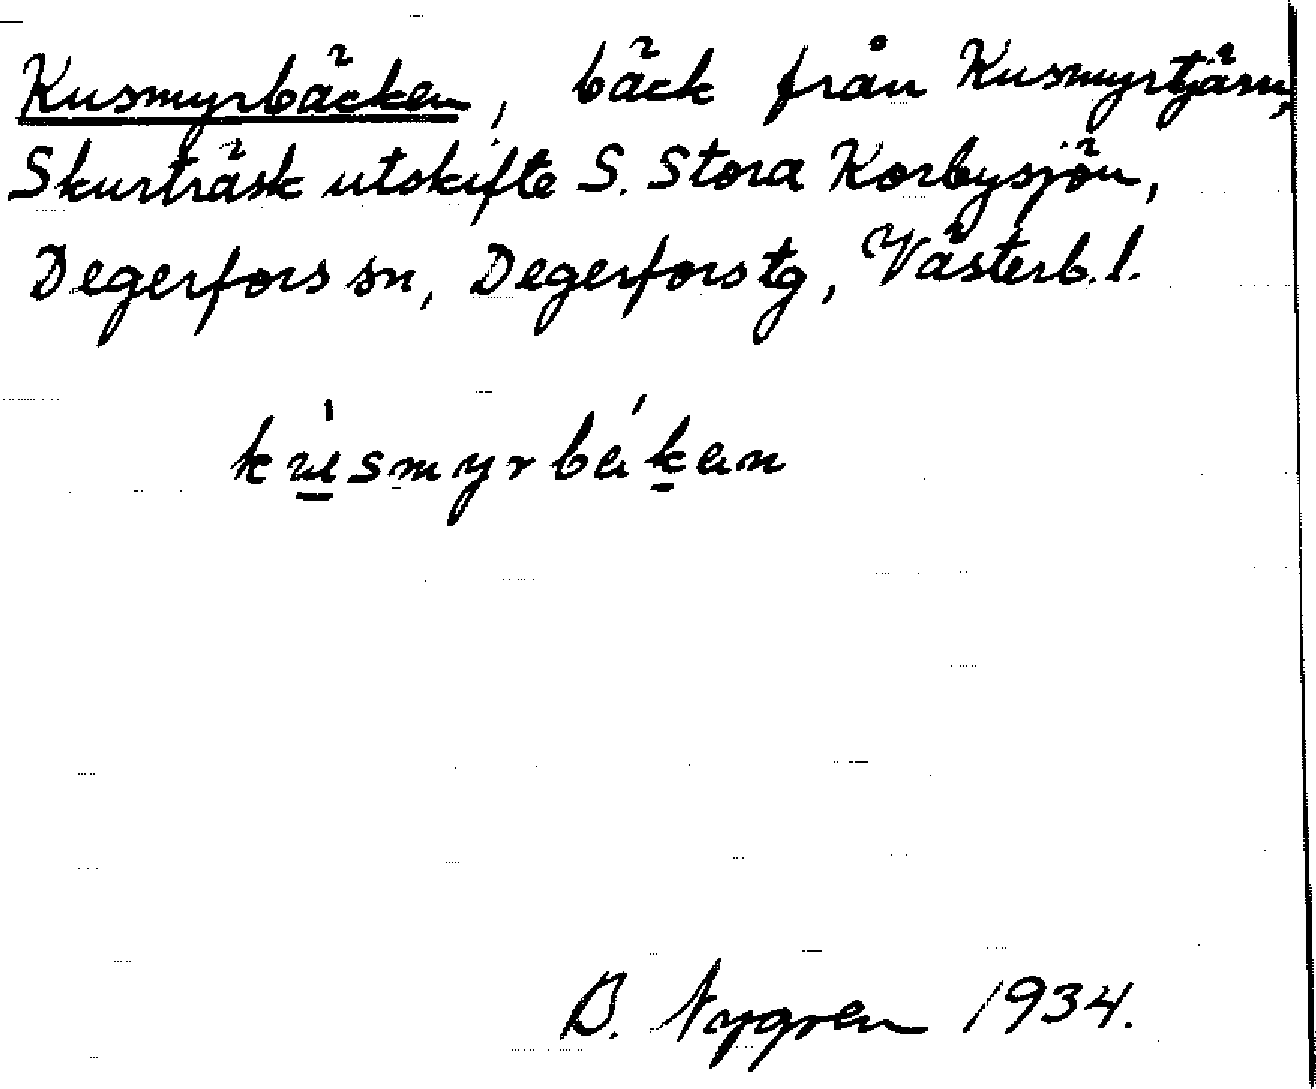 Kusmyrbäcken, bäck från Kusmyrtjärn,
Skurträsk utskifte S. Stora Korbysjön,
Degerfors sn, Degerfors tg, Västerb. l.
kusmyrbekan
B. Nygren 1934.